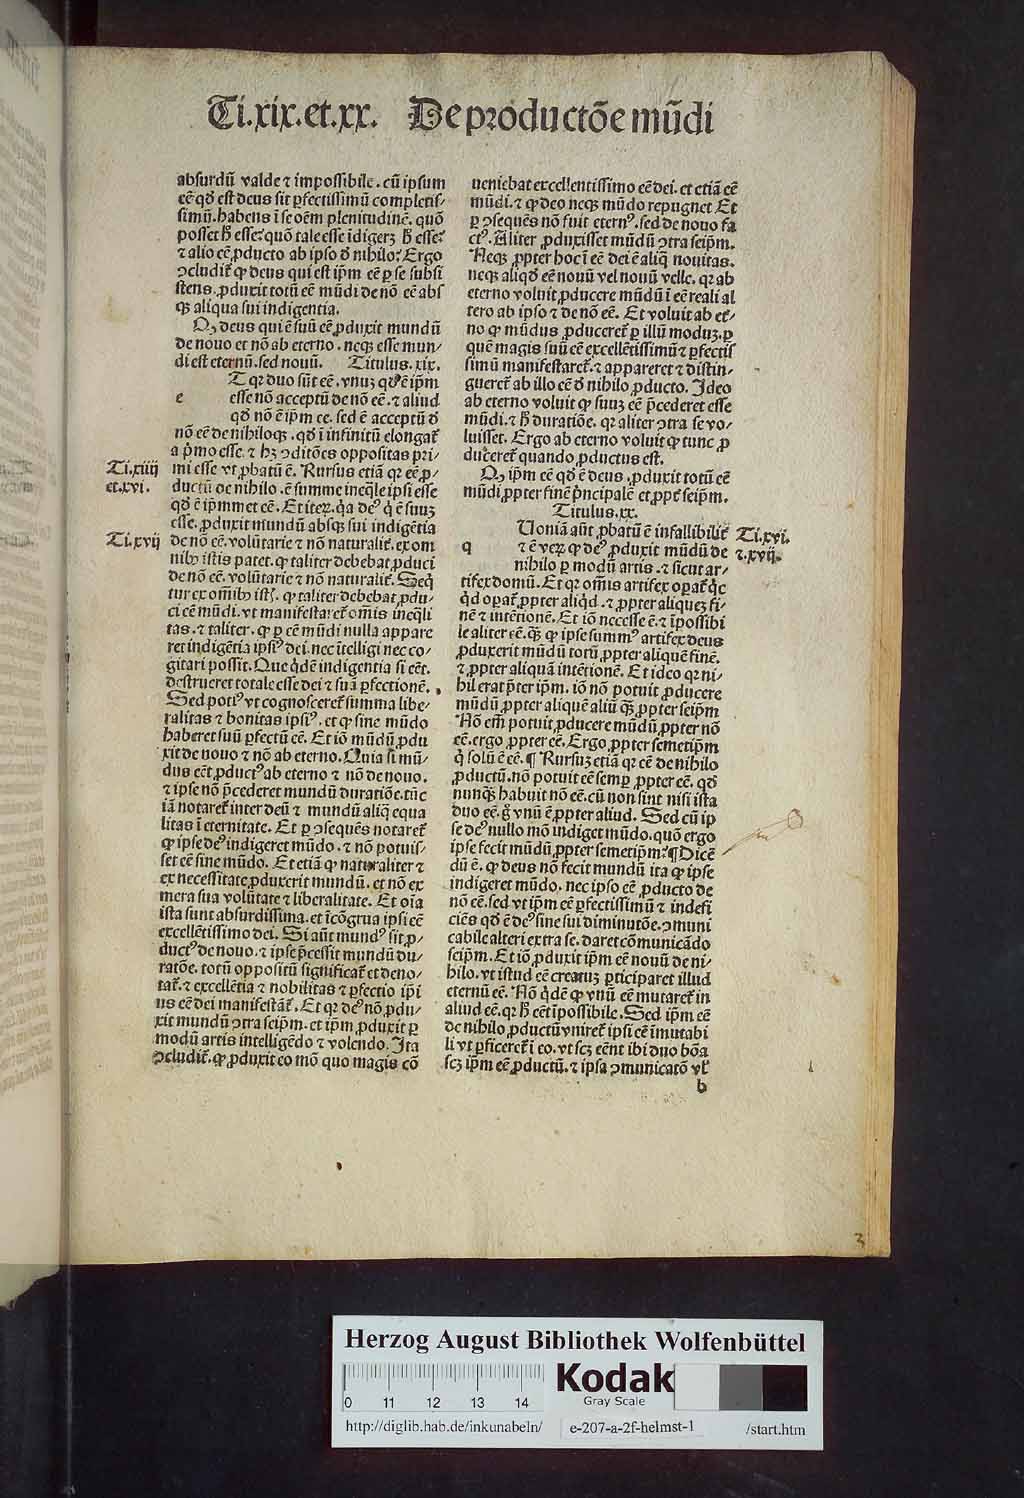 Ti.xix.et.xx. De productōe mūdi
absurdū valde ⁊ impossibile. cū ipsum
eē qd̄ est deus sit ꝑfectissimū completis⸗
simū. habens ī se oēm plenitudinē. quō
posset h̄ esse? quō tale esse īdigerꝫ h̄ esse?
⁊ alio eē ꝓducto ab ipso d̄ nihilo? Ergo
ꝯcludit᷑ ꝙ deus qui est ip̄m eē ꝑ se subsi
stens. ꝓduxit totū eē mūdi de nō eē abs
qꝫ aliqua sui indigentia.
Qꝫ deus qui ē suū eē ꝓduxit mundū
de nouo et nō ab eterno. neqꝫ esse mun⸗
di est eternū. sed nouū. Titulus. xix.
T qꝛ duo sūt eē. vnuꝫ qd̄ ē ip̄m
e esse nō acceptū de nō eē. ⁊ aliud
qd̄ nō ē ip̄m eē. sed ē acceptū d̄
nō eē de nihiloqꝫ. qd̄ ī infinitū elongat᷑
a pͥmo esse. ⁊ hꝫ ꝯditōes oppositas pri⸗
Ti.xiiij
et.xvi.
mi esse vt ꝓbatū ē. Rursus etiā qꝛ eē ꝓ⸗
ductū de nihilo. ē summe ineq̄le ipsi esse
qd̄ ē ip̄mmet eē. Et iteꝝ. qꝛ deꝰ qͥ ē suuꝫ
esse. ꝓduxit mundū absqꝫ sui indigētia
Ti.xvij
de nō eē. volūtarie ⁊ nō naturalit᷑. ex om
nibꝰ istis patet. ꝙ taliter debebat ꝓduci
de nō eē. volūtarie ⁊ nō naturalit᷑. Seq̄
tur ex oīibꝰ istꝭ. ꝙ taliter debebat ꝓdu⸗
ci eē mūdi. vt manifestaret᷑ omīs ineq̄li
tas. ⁊ taliter. ꝙ ꝑ eē mūdi nulla appare
ret indigētia ipsiꝰ dei. nec ītelligi nec co⸗
gitari possit. Que qͥdē indigentia si eēt.
destrueret totale esse dei ⁊ suā ꝑfectionē.
Sed potiꝰ vt cognosceret᷑ summa libe⸗
ralitas ⁊ bonitas ipsiꝰ. et ꝙ sine mūdo
haberet suū ꝑfectū eē. Et iō mūdū ꝓdu
xit de nouo ⁊ nō ab eterno. Quia si mū⸗
dus eēt ꝓductꝰ ab eterno ⁊ nō de nouo.
⁊ ipse nō p̄cederet mundū duratiōe. tūc
iā notaret᷑ inter deū ⁊ mundū aliq̄ equa
litas ī eternitate. Et ꝑ ꝯsequēs notaret᷑
ꝙ ipse deꝰ indigeret mūdo. ⁊ nō potuis⸗
set eē sine mūdo. Et etiā ꝙ naturaliter ⁊
ex necessitate ꝓduxerit mundū. et nō ex
mera sua volūtate ⁊ liberalitate. Et oīa
ista sunt absurdissima. et īcōgrua ipsi eē
excellētissimo dei. Si aūt mundꝰ sit ꝓ⸗
ductꝰ de nouo. ⁊ ipse p̄cessit mundū du⸗
ratōe. totū oppositū significat᷑ et deno⸗
tat᷑. ⁊ excellētia ⁊ nobilitas ⁊ ꝑfectio ip̄i
us eē dei manifestat᷑. Et qꝛ deꝰ nō ꝓdu⸗
xit mundū ꝯtra seip̄m. et ip̄m ꝓduxit ꝑ
modū artis intelligēdo ⁊ volendo. Ita
ꝯcludit᷑. ꝙ ꝓduxit eo mō quo magis cō
ueniebat excellentissimo eē dei. et etiā eē
mūdi. ⁊ ꝙ deo neqꝫ mūdo repugnet Et
ꝑ ꝯsequēs nō fuit eternꝰ. sed de nouo fa
ctꝰ. Aliter ꝓduxisset mūdū ꝯtra seip̄m.
Neqꝫ ꝓpter hoc ī eē dei ē aliq̄ nouitas.
neqꝫ aliqd̄ eē nouū vel nouū velle. qꝛ ab
eterno voluit ꝓducere mūdū ī eē reali al
tero ab ipso ⁊ de nō eē. Et voluit ab et᷑⸗
no ꝙ mūdus ꝓduceret᷑ ꝑ illū moduꝫ. ꝑ
quē magis suū eē excellētissimū ⁊ ꝑfectis
simū manifestaret᷑. ⁊ appareret ⁊ distin⸗
gueret᷑ ab illo eē d̄ nihilo ꝓducto. Ideo
ab eterno voluit ꝙ suuꝫ eē p̄cederet esse
mūdi. ⁊ h̄ duratiōe. qꝛ aliter ꝯtra se vo⸗
luisset. Ergo ab eterno voluit ꝙ tunc ꝓ
duceret᷑ quando ꝓductus est.
Qꝫ ip̄m eē qd̄ ē deus. ꝓduxit totū eē
mūdi ꝓpter finē pͥncipalē et ꝓpt᷑ seip̄m.
Titulus. xx.
Uoniā aūt ꝓbatū ē infallibilit᷑
Ti.xvi.
q ⁊ ē veꝝ ꝙ deꝰ ꝓduxit mūdū de
⁊.xvij.
nihilo ꝑ modū artis. ⁊ sicut ar⸗
tifex domū. Et qꝛ omīs artifex oꝑat᷑ qͥc
qͥd oꝑat᷑ ꝓpter aliqͥd. ⁊ ꝓpter aliqueꝫ fi⸗
nē ⁊ intētionē. Et iō necesse ē. ⁊ īpossibi
le aliter eē. qꝫ ꝙ ipse summꝰ artifex deus
ꝓduxerit mūdū totū ꝓpter aliquē finē.
⁊ ꝓpter aliquā intētionē. Et ideo qꝛ ni⸗
hil erat p̄ter ip̄m. iō nō potuit ꝓducere
mūdū ꝓpter aliquē aliū qꝫ ꝓpter seip̄m
Nō em̄ potuit ꝓducere mūdū ꝓpter nō
eē. ergo ꝓpter eē. Ergo ꝓpter semetip̄m
qͥ solū ē eē. ¶ Rursuꝫ etiā qꝛ eē de nihilo
ꝓductū. nō potuit eē semꝑ ꝓpter eē. qd̄
nunqꝫ habuit nō eē. cū non sint nisi ista
duo eē. g̊ vnū ē ꝓpter aliud. Sed cū ip
se deꝰ nullo mō indiget mūdo. quō ergo
ipse fecit mūdū ꝓpter semetip̄m? ¶ Dicē
dū ē. ꝙ deus nō fecit mundū ita ꝙ ipse
indigeret mūdo. nec ipso eē ꝓducto de
nō eē. sed vt ip̄m eē ꝑfectissimū ⁊ indefi
ciēs qd̄ ē deꝰ sine sui diminutōe. ꝯmuni
cabile alteri extra se. daret cōmunicādo
seip̄m. Et iō ꝓduxit ip̄m eē nouū de ni⸗
hilo. vt istud eē creatuꝫ ꝑticiparet illud
eternū eē. Nō qͥdē ꝙ vnū eē mutaret᷑ in
aliud eē. qꝛ h̄ eēt īpossibile. Sed ip̄m eē
de nihilo ꝓductū vniret᷑ ipsi eē īmutabi
li vt ꝑficeret᷑ ī eo. vt scꝫ eēnt ibi duo bōa
scꝫ ip̄m eē ꝓductū. ⁊ ipsa ꝯmunicatō vl᷑
b
3
Herzog August Bibliothek Wolfenbüttel
0 11 12 13 14
Kodak
Gray Scale
http://diglib.hab.de/inkunabeln/ e-207-a-2f-helmst-1 /start.htm